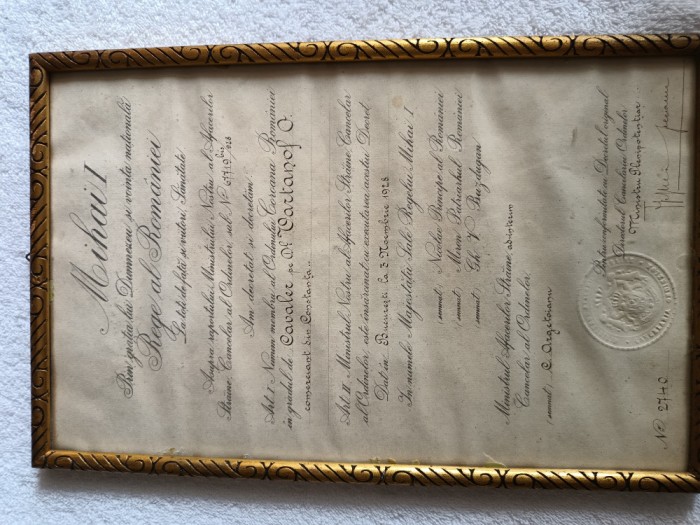 Mihai I
Prin grația lui Dumnezeu și voința națională
Rege al României
La toți de față și viitori, Sănătate
Asupra raportului Ministrului Nostru al Afacerilor
Străine, Cancelar al Ordinelor sub No 67719 bis 928
Am decretat și decretăm:
Art. I Numim membru al Ordinului Coroana României
în gradul de Cavaler pe Dl Vartanof O.
comerciant din Constanța
Art. II Ministrul Nostru al Afacerilor Străine Cancelar
al Ordinelor, este însărcinat cu executarea acestui Decret
Dat în București la 3 Noembrie 1928
In numele Majestății Sale Regelui Mihai I
(semnat) Nicolae Principe al României
(semnat) Miron Patriarhul României
(semnat) Gh. V. Buzdugan
Ministrul Afacerilor Străine, ad-interim
Cancelar al Ordinelor.
(semnat) C. Argetoianu
Pentru conformitate cu Decretul original
Directorul Cancelariei Ordinelor
Ministru Plenipotențiar
No 2740